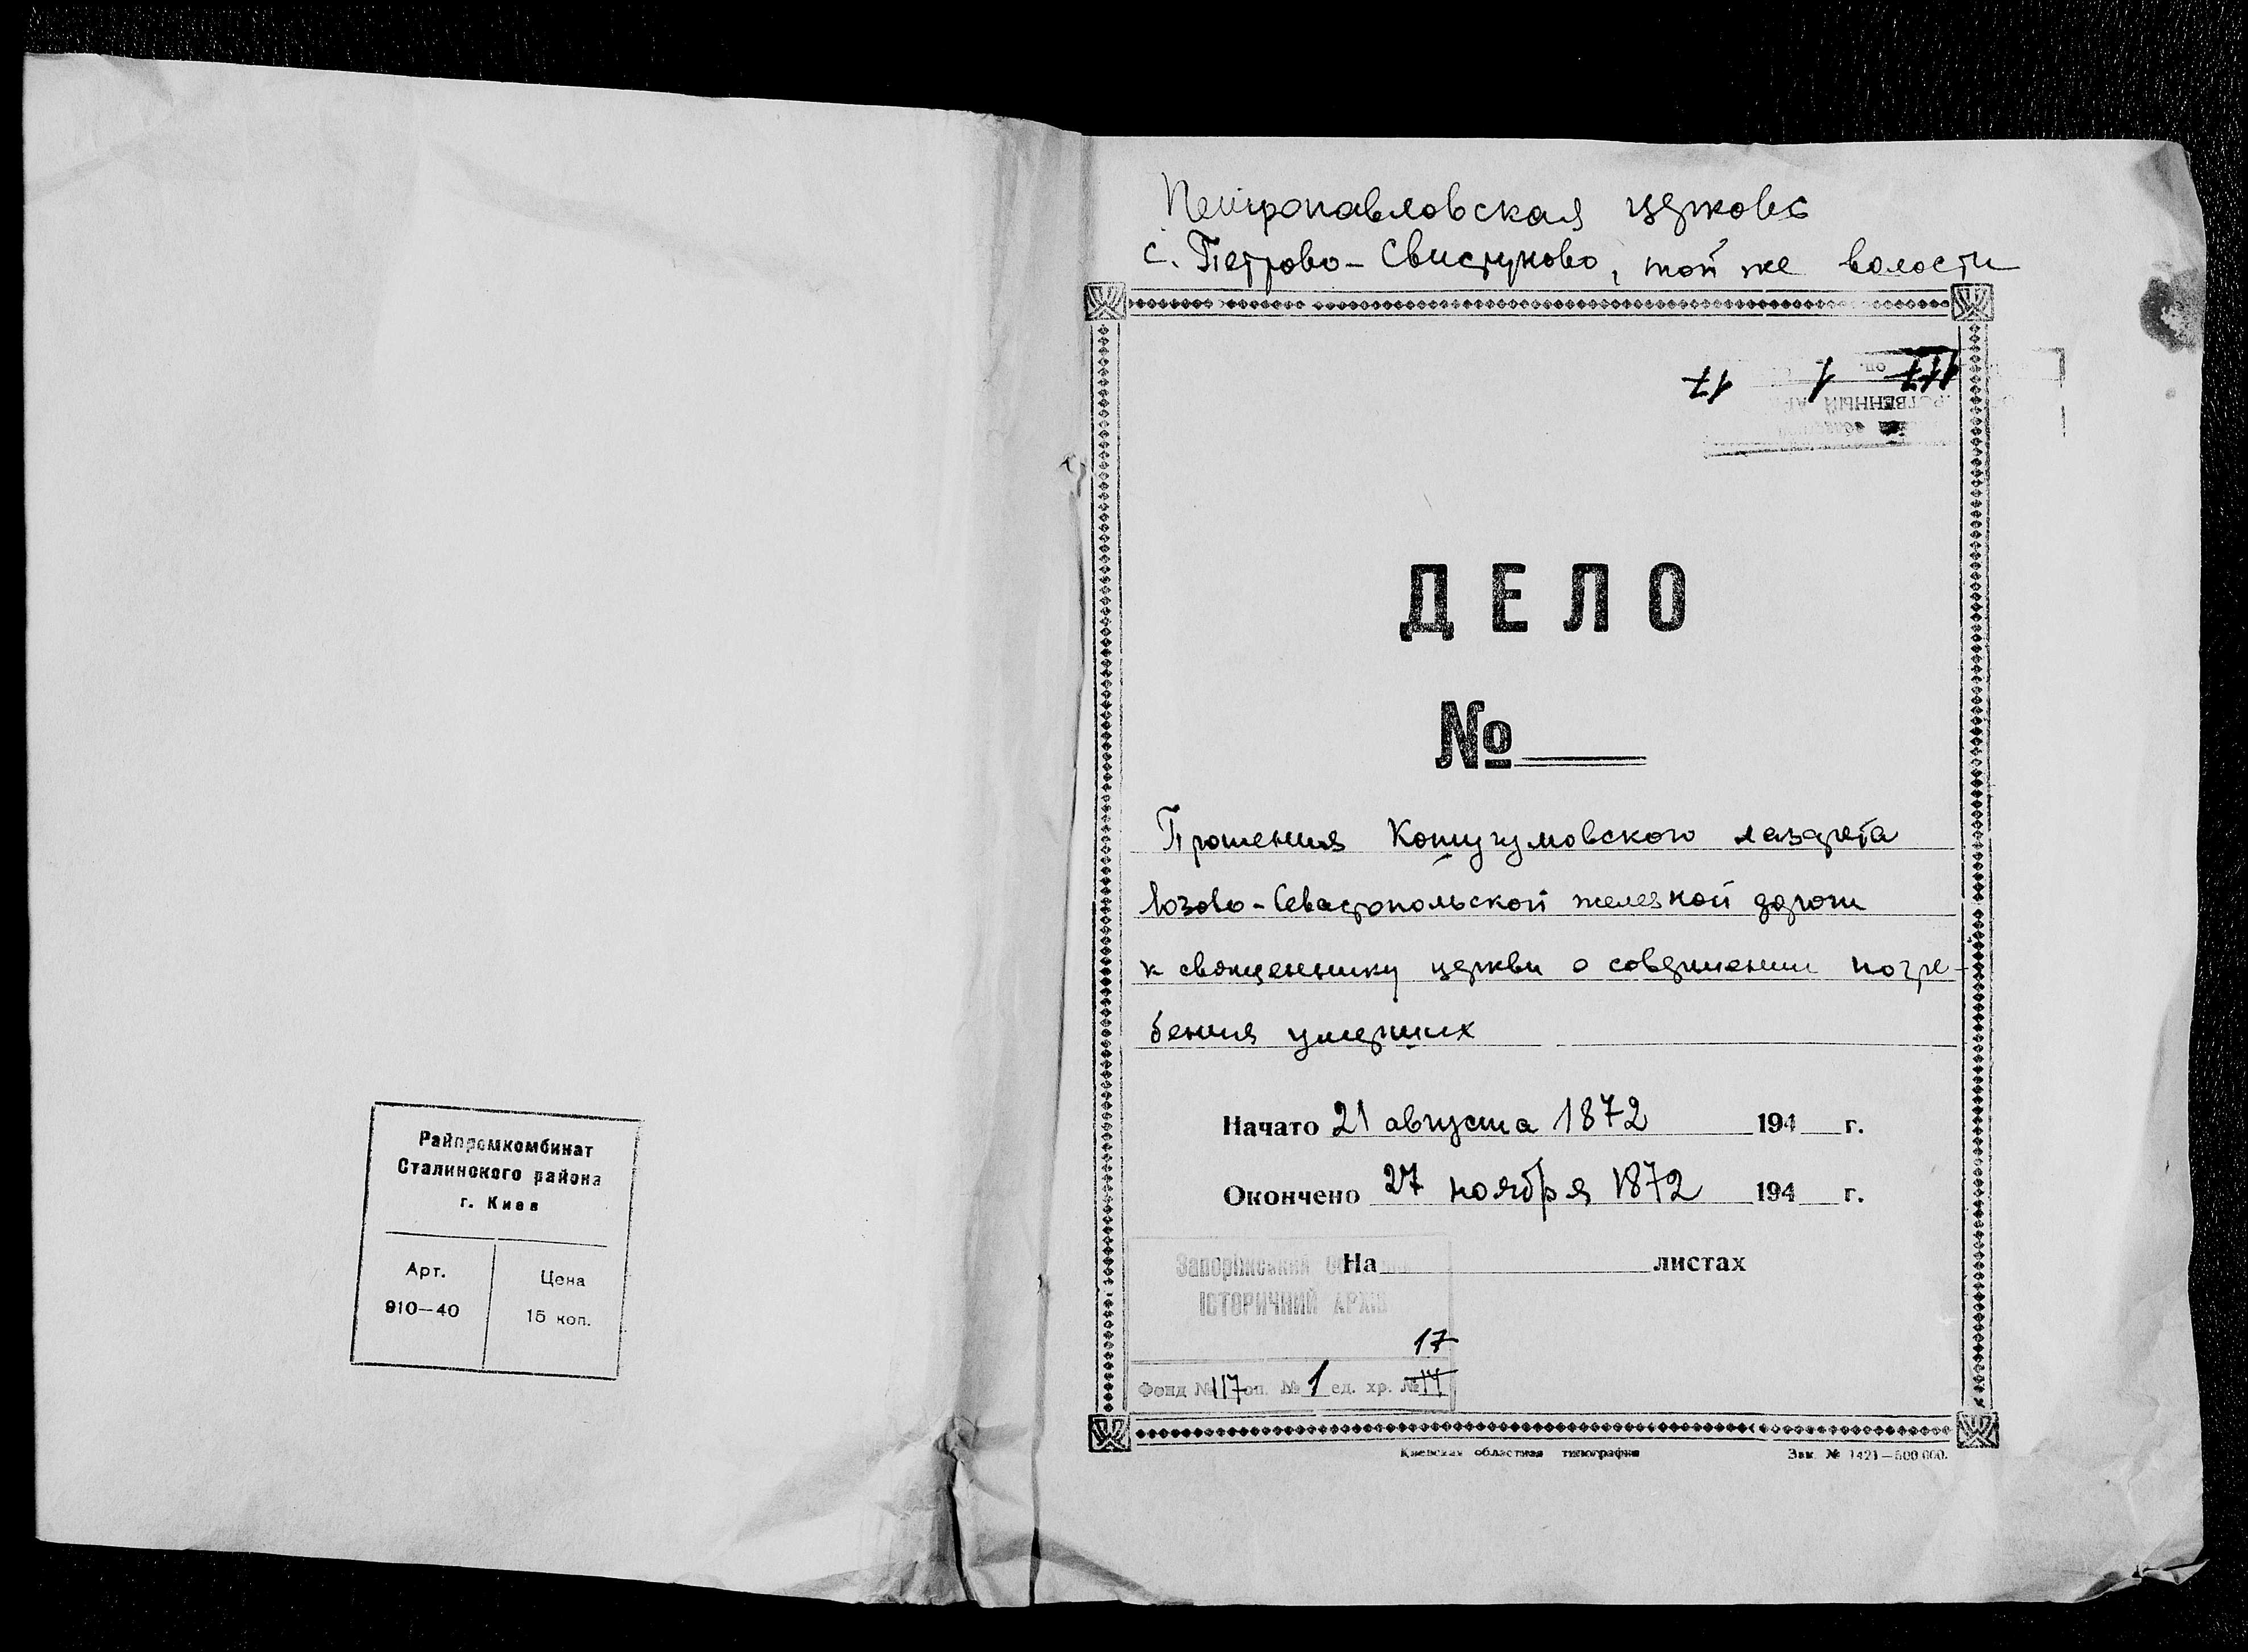 Петропавловская церковь
с. Петрово-Свистуново, той же волости
117 оп. 1 17
ДЕЛО
№
Прошения Кошугумовского лазарета
Лозово-Севастопольской железной дороги
к священнику церкви о совершении погре-
бения умерших
Начато 21 августа 1872 194 г.
Окончено 27 ноября 1872 194 г.
На листах
Запоріжський
ІСТОРИЧНИЙ АРХІВ
17
Фонд № 117 оп. № 1 ед. хр. № 14
Киевская областная типография Зак. № 1421—500 000.
Райпромкомбинат
Сталинского района
г. Киев
Арт. Цена
910—40 15 коп.